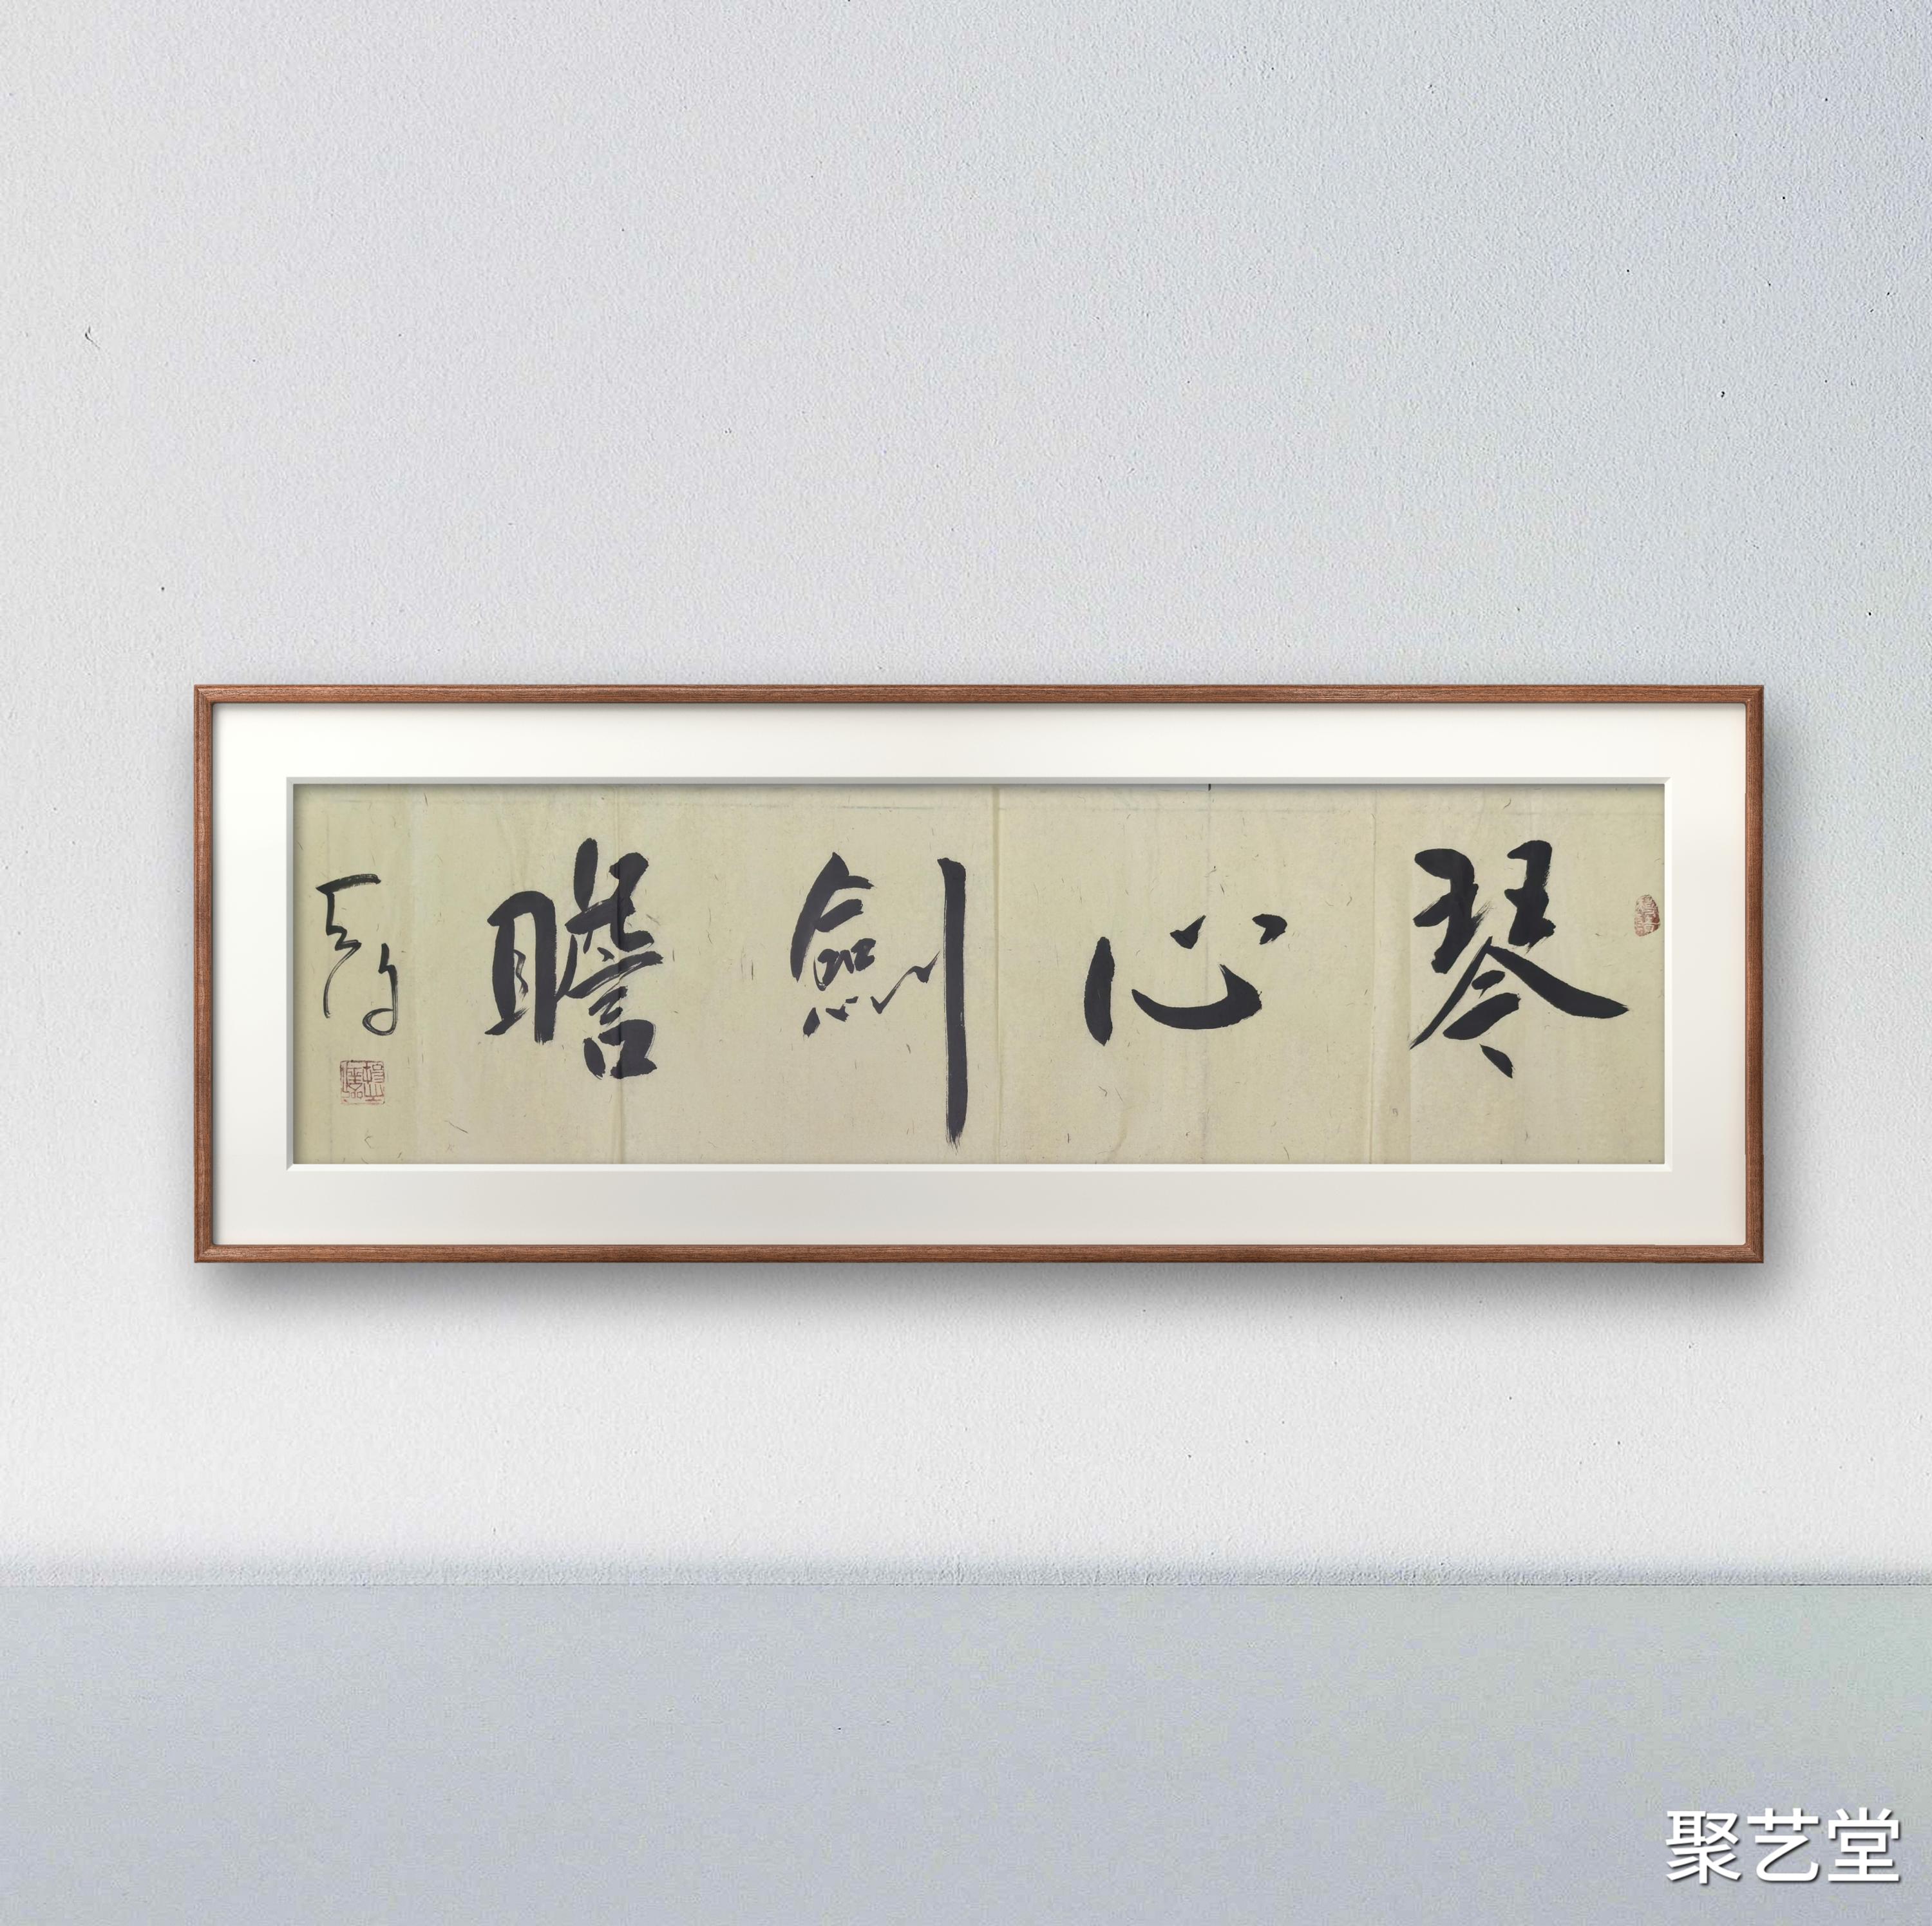 琴心劍膽
聚艺堂